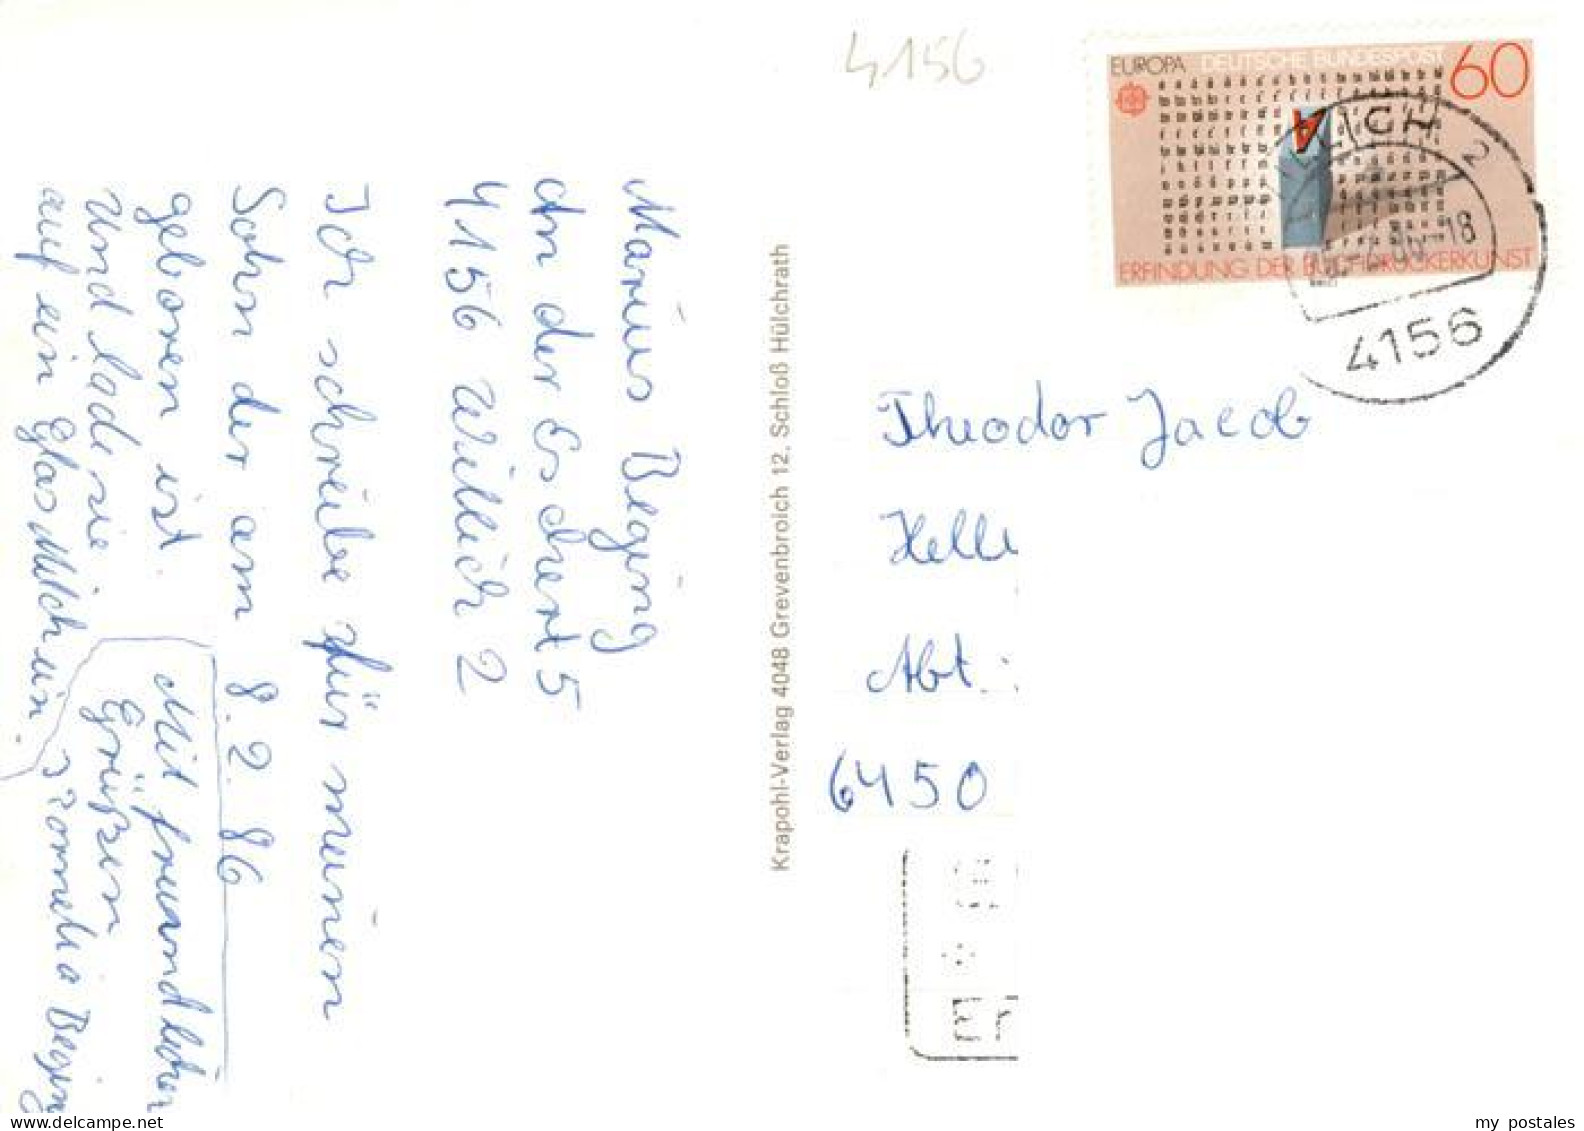 4156
EUROPA DEUTSCHE BUNDESPOST 60
ERFINDUNG DER BUCHDRUCKERKUNST
WILLICH 2
-18
4156
Marius Beging
An der Eschert 5
4156 Willich 2
Ich schreibe für meinen
Sohn der am 8.2.86
geboren ist.
Und lade sie
auf ein Glas Milch ein.
Mit freundlichen
Grüßen
Beging
Krapohl-Verlag 4048 Grevenbroich 12, Schloß Hülchrath
Theodor Jacob
Helle
Abt.
6450
my postales